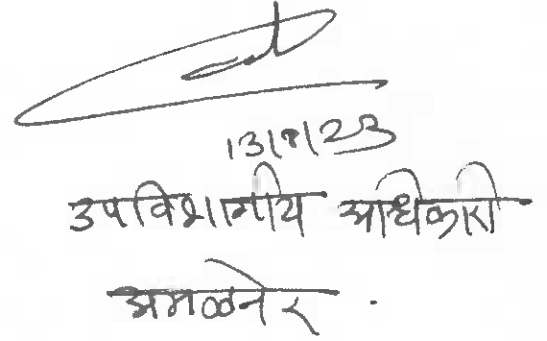 13/9/23
उपविभागीय अधिकारी
अमळनेर.